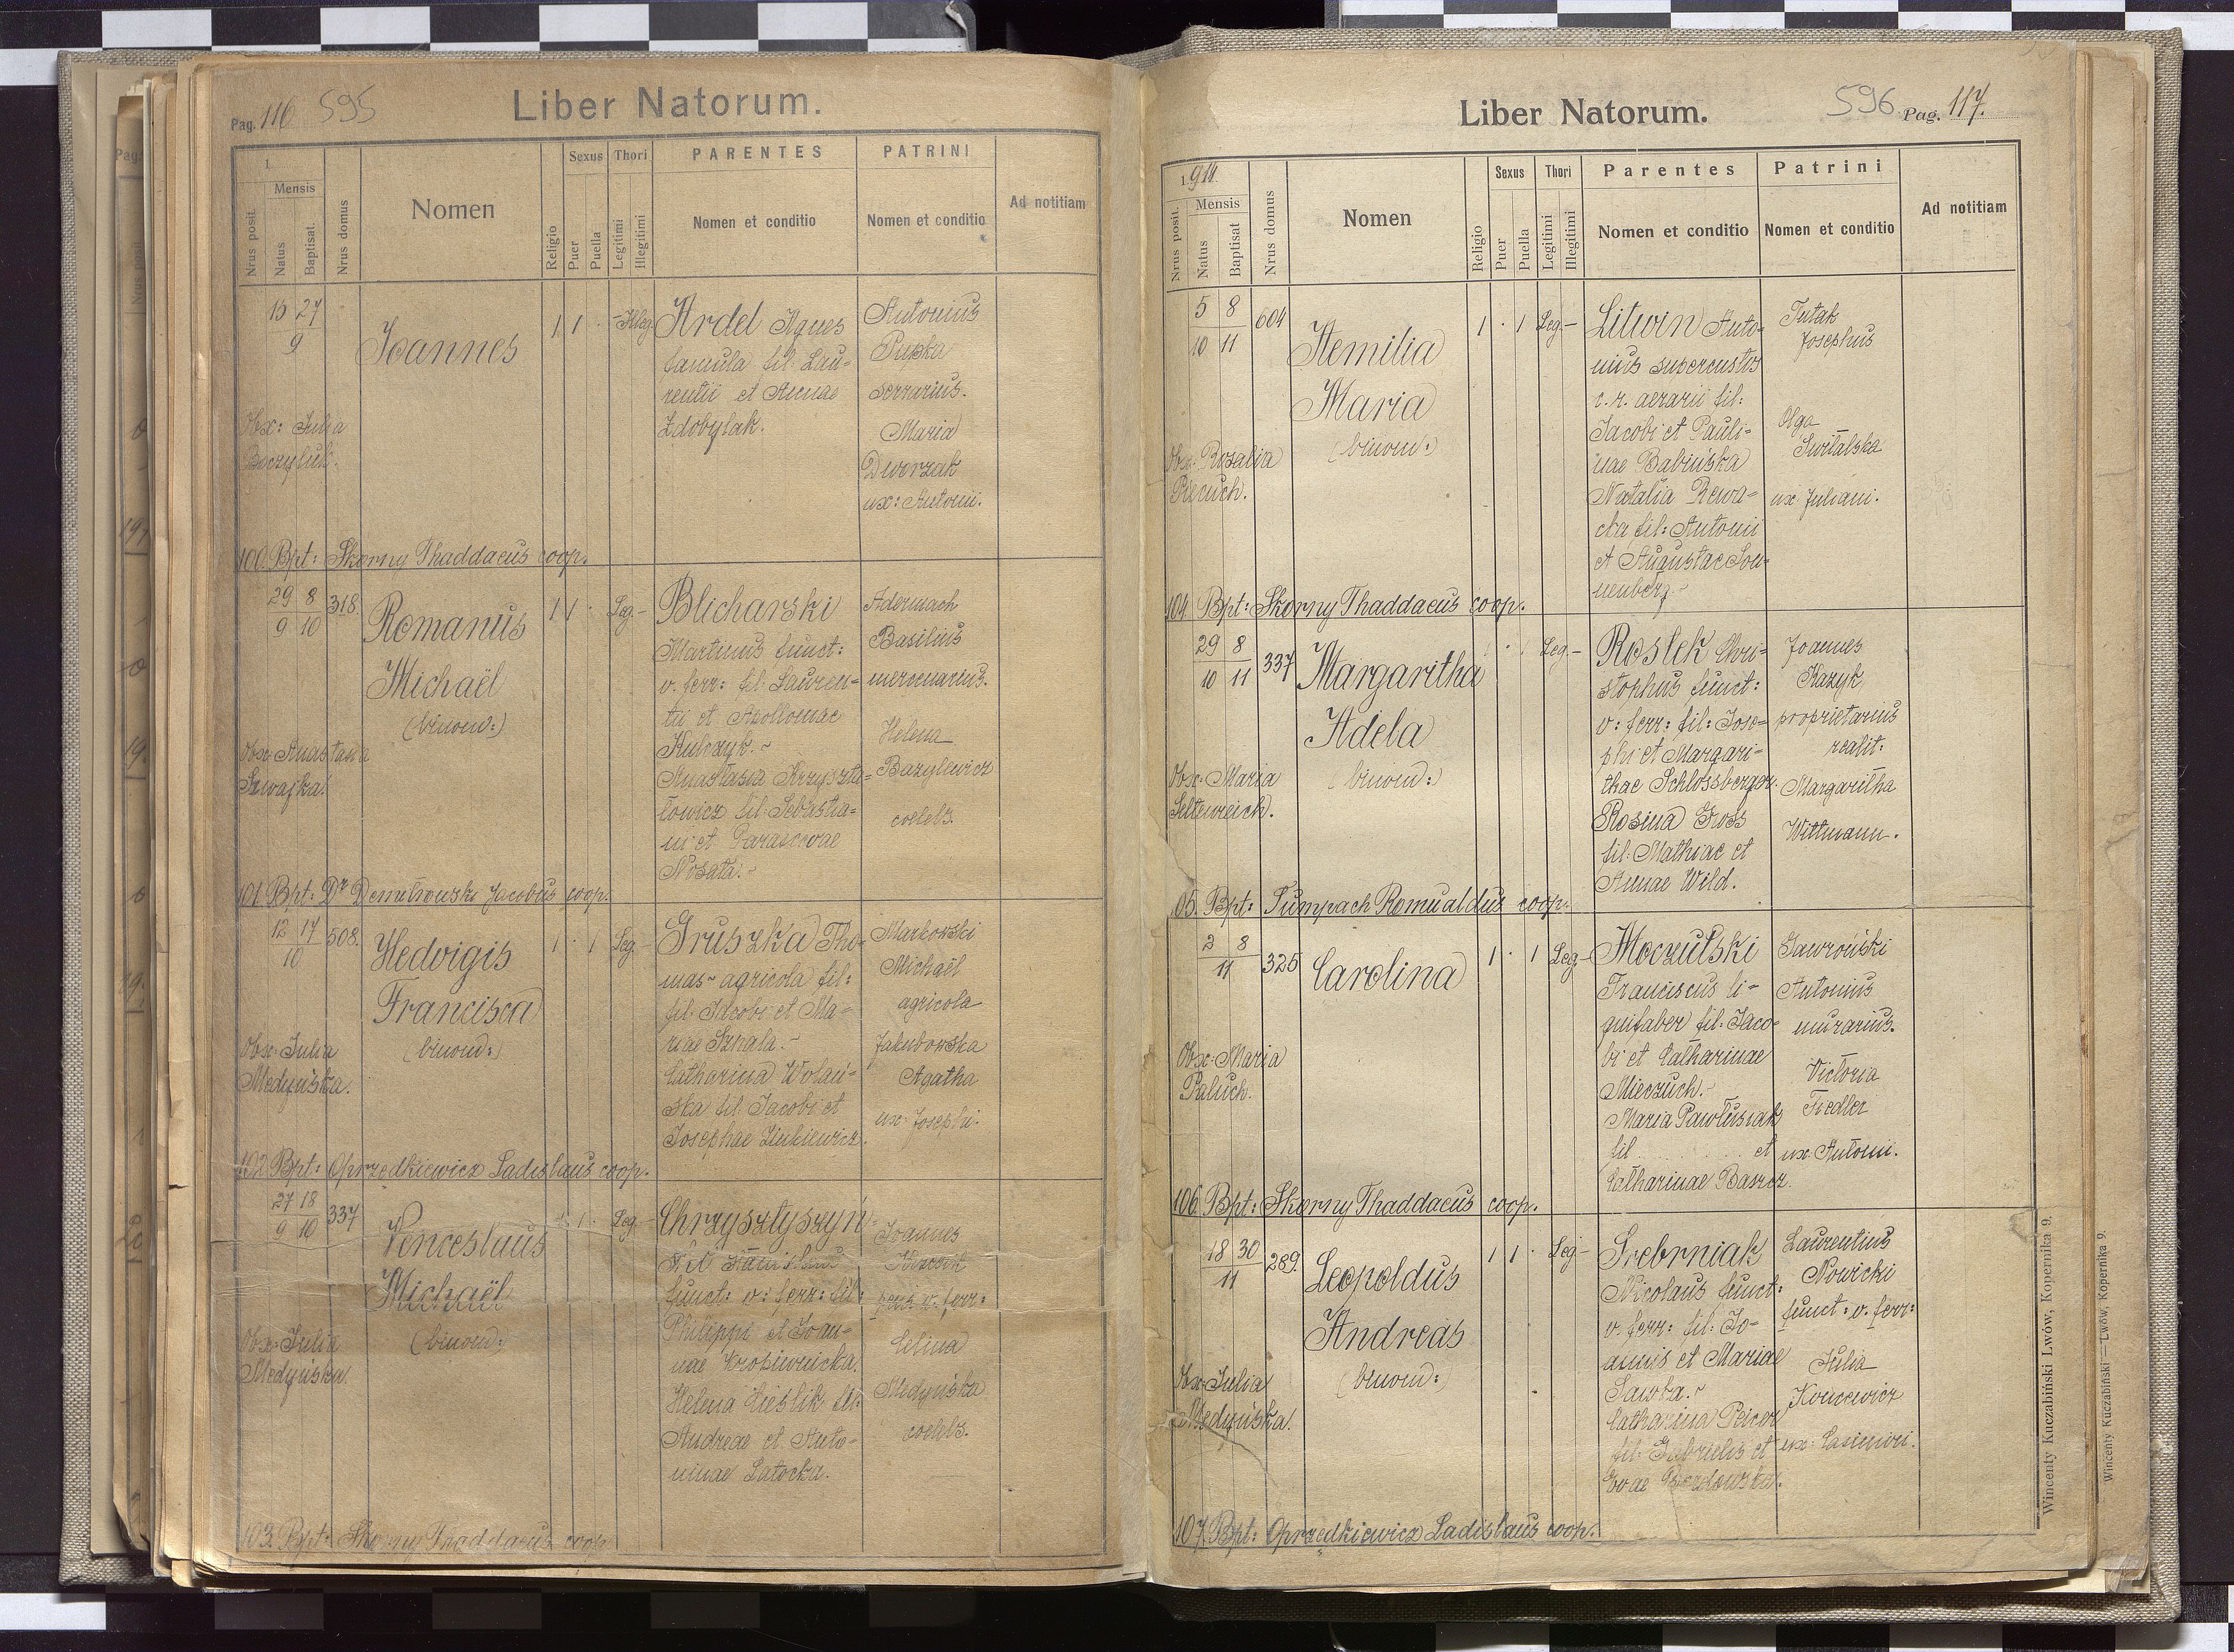 Pag. 116 595
Liber Natorum.
1.
Mensis
Nrus posit.
Natus
Baptisat.
Nrus domus
Nomen
Religio
Sexus
Puer
Puella
Thori
Legitimi
Illegitimi
PARENTES
Nomen et conditio
PATRINI
Nomen et conditio
Ad notitiam
15 27
9
Joannes
1 1 · - Illeg.
Ardel Agnes
famula fil: Lau-
rentii et Annae
Zdobylak.
Antonius
Pupka
serrarius.
Maria
Dworzak
ux: Antoni.
Obx: Julia
100. Bpt: Skorny Thaddaeus coop.
29 8
9 10
318.
Romanus
Michaël
(binom:)
1 1 · Leg. -
Blicharski
Martinus funct:
v. ferr: fil: Lauren-
tii et Apolloniae
Kulczyk. ~
Anastasia Krzyszta-
łowicz fil: Sebastia-
ni et Parascevae
Nosata. -
Adermach
Basilius
mercenarius.
Helena
Bazylewicz
coelebs.
Obx: Anastasia
Szwajka.
101. Bpt: Dr Demitrowski Jacobus coop.
12 17
10
508.
Hedvigis
Francisca
(binom:)
1 · 1 Leg. -
Gruszka Tho-
mas ~ agricola fil:
fil: Jacobi et Ma-
riae Sznala. ~
Catharina Wolań-
ska fil: Jacobi et
Josephae Zinkiewicz.
Markowski
Michaël
agricola
Jakubowska
Agatha
ux: Josephi.
Obx: Julia
Medyńska.
102. Bpt: Oprzędkiewicz Ladislaus coop.
27 18
9 10
337
Venceslaus
Michaël
(binom:)
1 · Leg. -
Chrzyszłyszyń-
funct: v: ferr: fil:
Philippi et Joan-
nae Kropiwnicka.
Helena Cieslik fil:
Andreae et Anto-
ninae Łatocka.
Joannes
v. ferr:
Celina
Medyńska
coelebs.
Obx: Julia
Medyńska.
103. Bpt: Skorny Thaddaeus coop.
Liber Natorum.
596. Pag. 117.
1911.
Mensis
Nrus posit.
Natus
Baptisat
Nrus domus
Nomen
Religio
Sexus
Puer
Puella
Thori
Legitimi
Illegitimi
Parentes
Nomen et conditio
Patrini
Nomen et conditio
Ad notitiam
5 8
10 11
604
Aemilia
Maria
(binom:)
1 · 1 Leg. -
Litwin Anto-
nius supercustos
c. r. aerarii fil:
Jacobi et Pauli-
nae Babińska
Natalia Rewa-
cka fil: Antonii
et Augustae Son-
nenberg. -
Tutak
Josephus
Olga
Świtalska
ux Juliani.
Obx: Rosalia
Piecuch.
104. Bpt: Skorny Thaddaeus coop.
29 8
10 11
337
Margaritha
Adela
(binom:)
Leg. -
Rostek Chri-
stophus funct:
v: ferr: fil: Jose-
phi et Margari-
thae Schlossberger.
Rosina Gross
fil: Mathiae et
Annae Wild.
Joannes
Kazyk
proprietarius
realit:
Margaritha
Wittmann.
Obx: Maria
Seltenreich.
05. Bpt: Tumpach Romualdus coop.
2 8
11
325
Carolina
1 · 1 Leg -
Moczulski
Franciscus li-
gnifaber fil: Jaco-
bi et Catharinae
Mieczuch. ~
Maria Pawlusiak
fil. . . . . . . . . et
Catharinae Baszcz.
Gawroński
Antonius
murarius.
Victoria
Fiedler
ux: Antoni.
Obx: Maria
Paluch.
106. Bpt: Skorny Thaddaeus coop.
18 30
11
289.
Leopoldus
Andreas
(binom:)
1 1 · Leg -
Srebrniak
Nicolaus funct:
v. ferr: fil: Jo-
annis et Mariae
Sawka. ~
Catharina Peicer
fil: Gabrielis et
Evae
Laurentius
Nowicki
funct: v. ferr:
Julia
Koncewicz
ux: Casimiri.
Obx: Julia
Medyńska.
107. Bpt: Oprzędkiewicz Ladislaus coop.
Wincenty Kuczabiński Lwów, Kopernika 9.
Wincenty Kuczabiński — Lwów, Kopernika 9.